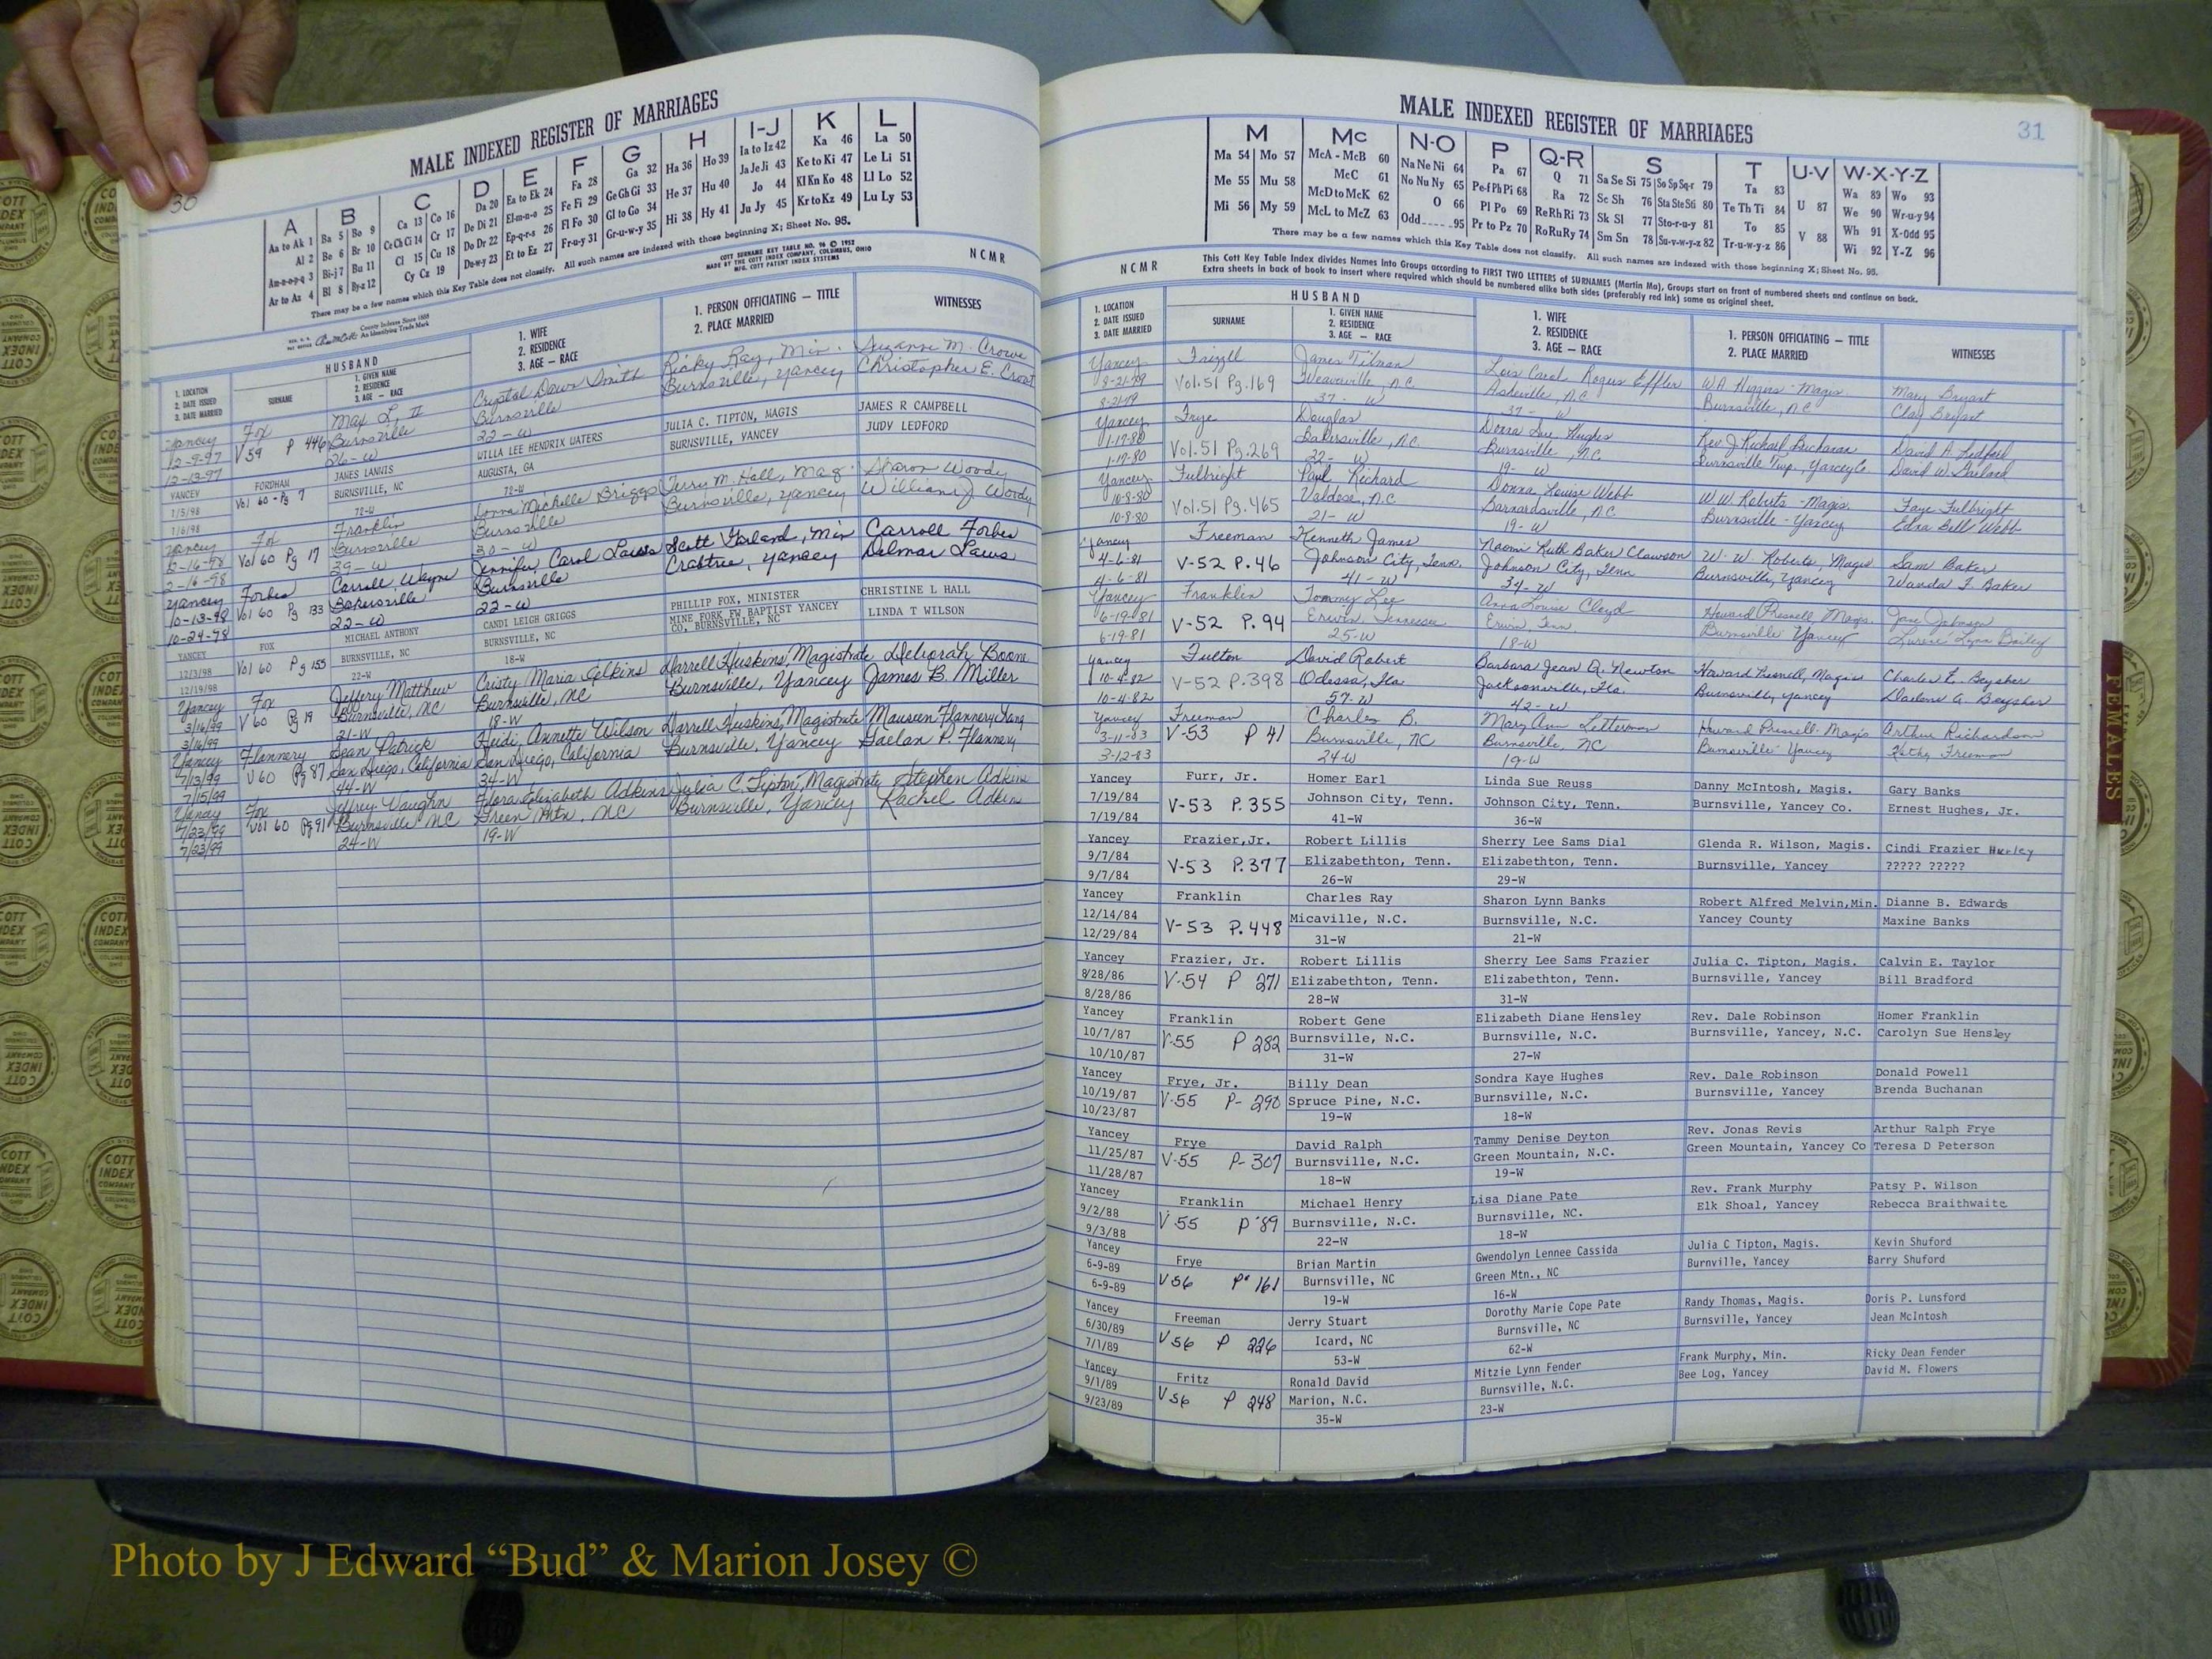 30
MALE INDEXED REGISTER OF MARRIAGES
A
Aa to Ak 1
Al 2
Am-n-o-p-q 3
Ar to Az 4
B
Ba 5 Bo 9
Be 6 Br 10
Bi-j 7 Bu 11
Bl 8 By-z 12
C
Ca 13 Co 16
Ce Ch Ci 14 Cr 17
Cl 15 Cu 18
Cy Cz 19
D
Da 20
De Di 21
Do Dr 22
Du-w-y 23
E
Ea to Ek 24
El-m-n-o 25
Ep-q-r-s 26
Et to Ez 27
F
Fa 28
Fe Fi 29
Fl Fo 30
Fr-u-y 31
G
Ga 32
Ge Gh Gi 33
Gl to Go 34
Gr-u-w-y 35
H
Ha 36 Ho 39
He 37 Hu 40
Hi 38 Hy 41
I-J
Ia to Iz 42
Ja Je Ji 43
Jo 44
Ju Jy 45
K
Ka 46
Ke to Ki 47
Kl Kn Ko 48
Kr to Kz 49
L
La 50
Le Li 51
Ll Lo 52
Lu Ly 53
There may be a few names which this Key Table does not classify. All such names are indexed with those beginning X; Sheet No. 95.
County Indexes Since 1888
An Identifying Trade Mark
COTT SURNAME KEY TABLE NO. 96 © 1952
MADE BY THE COTT INDEX COMPANY, COLUMBUS, OHIO
MFG. COTT PATENT INDEX SYSTEMS
NCMR
1. LOCATION
2. DATE ISSUED
3. DATE MARRIED
HUSBAND
SURNAME
1. GIVEN NAME
2. RESIDENCE
3. AGE — RACE
1. WIFE
2. RESIDENCE
3. AGE — RACE
1. PERSON OFFICIATING — TITLE
2. PLACE MARRIED
WITNESSES
Yancey Fox Max L, II Crystal Dawn Smith Ricky Ray, Min. Suzanne M. Crowe
12-9-97 V59 P 446 Burnsville Burnsville Burnsville, Yancey Christopher E.
12-13-97 26-W 22-W
YANCEY FORDHAM JAMES LANVIS WILLA LEE HENDRIX WATERS JULIA C. TIPTON, MAGIS JAMES R CAMPBELL
1/5/98 Vol 60-Pg 7 BURNSVILLE, NC AUGUSTA, GA BURNSVILLE, YANCEY JUDY LEDFORD
1/6/98 72-W 72-W
Yancey Fox Franklin Donna Michelle Briggs Terry M. Hall, Mag. Sharon Woody
2-16-98 Vol 60 Pg 17 Burnsville Burnsville Burnsville, Yancey William J Woody
2-16-98 39-W 30-W
Yancey Forbes Carroll Wayne Jennifer Carol Laws Scott Garland, Min Carroll Forbes
10-13-98 Vol 60 Pg 133 Bakersville Burnsville Crabtree, Yancey Delmar Laws
10-24-98 22-W 22-W
YANCEY FOX MICHAEL ANTHONY CANDI LEIGH GRIGGS PHILLIP FOX, MINISTER CHRISTINE L HALL
12/3/98 Vol 60 Pg 155 BURNSVILLE, NC BURNSVILLE, NC MINE FORK FW BAPTIST YANCEY CO, BURNSVILLE, NC LINDA T WILSON
12/19/98 22-W 18-W
Yancey Fox Jeffery Matthew Cristy Maria Elkins Darrell Huskins, Magistrate Deborah Boone
3/16/99 V60 Pg 19 Burnsville, NC Burnsville, NC Burnsville, Yancey James B. Miller
3/16/99 21-W 18-W
Yancey Flannery Sean Patrick Heidi Annette Wilson Darrell Huskins, Magistrate Maureen Flannery
7/13/99 V60 Pg 87 San Diego, California San Diego, California Burnsville, Yancey Gaelan P. Flannery
7/15/99 44-W 34-W
Yancy Fox Jeffrey Vaughn Flora Elizabeth Adkins Julia C. Tipton, Magistrate Stephen Adkins
7/23/99 Vol 60 Pg 91 Burnsville NC Green Mtn, NC Burnsville, Yancey Rachel Adkins
7/23/99 24-W 19-W
31
MALE INDEXED REGISTER OF MARRIAGES
M
Ma 54 Mo 57
Me 55 Mu 58
Mi 56 My 59
Mc
McA - McB 60
McC 61
McD to McK 62
McL to McZ 63
N-O
Na Ne Ni 64
No Nu Ny 65
O 66
Odd 95
P
Pa 67
Pe-f Ph Pi 68
Pl Po 69
Pr to Pz 70
Q-R
Q 71
Ra 72
Re Rh Ri 73
Ro Ru Ry 74
S
Sa Se Si 75 So Sp Sq-r 79
Sc Sh 76 Sta Ste Sti 80
Sk Sl 77 Sto-r-u-y 81
Sm Sn 78 Su-v-w-y-z 82
T
Ta 83
Te Th Ti 84
To 85
Tr-u-w-y-z 86
U-V
U 87
V 88
W-X-Y-Z
Wa 89 Wo 93
We 90 Wr-u-y 94
Wh 91 X-Odd 95
Wi 92 Y-Z 96
There may be a few names which this Key Table does not classify. All such names are indexed with those beginning X; Sheet No. 95.
NCMR
This Cott Key Table Index divides Names Into Groups according to FIRST TWO LETTERS of SURNAMES (Martin Ma), Groups start on front of numbered sheets and continue on back.
Extra sheets in back of book to insert where required which should be numbered alike both sides (preferably red ink) same as original sheet.
1. LOCATION
2. DATE ISSUED
3. DATE MARRIED
HUSBAND
SURNAME
1. GIVEN NAME
2. RESIDENCE
3. AGE — RACE
1. WIFE
2. RESIDENCE
3. AGE — RACE
1. PERSON OFFICIATING — TITLE
2. PLACE MARRIED
WITNESSES
Yancey Frizzell James Tilman Lois Carol Rogers Effler W.A. Higgins - Magis Mary Bryant
8-21-79 Vol.51 Pg.169 Weaverville, N.C. Asheville, N.C. Burnsville, N.C. Clay Bryant
8-21-79 37- W 37- W
Yancey Frye Douglas Donna Sue Hughes Rev. J. Richael Buchanan David A. Ledford
1-17-80 Vol.51 Pg.269 Bakersville, N.C. Burnsville, N.C. Burnsville Twp, Yancey Co David W. Garland
1-19-80 22- W 19- W
Yancey Fulbright Paul Richard Donna Louise Webb W.W. Roberts - Magis. Faye Fulbright
10-8-80 Vol.51 Pg.465 Valdese, N.C. Barnardsville, N.C. Burnsville - Yancey Edna Bell Webb
10-8-80 21- W 19- W
Yancey Freeman Kenneth James Naomi Ruth Baker Clawson W. W. Roberts, Magis Sam Baker
4-6-81 V-52 P.46 Johnson City, Tenn. Johnson City, Tenn Burnsville, Yancey Wanda F Baker
4-6-81 41-W 34-W
Yancey Franklin Tommy Lee Anna Louise Cloyd Howard Presnell Magis. Jane Johnson
6-19-81 V-52 P.94 Erwin, Tennessee Erwin, Tenn Burnsville Yancey Lynn Bailey
6-19-81 25-W 18-W
Yancey Fulton David Robert Barbara Jean Q. Newton Howard Presnell, Magis Charles E. Beysher
10-4-82 V-52 P.398 Odessa, Fla. Jacksonville, Fla. Burnsville, Yancey Darlene A. Beysher
10-4-82 57-W 42-W
Yancey Freeman Charles B. Mary Ann Letterman Howard Presnell Magis Arthur Richardson
3-11-83 V-53 P 41 Burnsville, NC Burnsville, NC Burnsville Yancey Kathy Freeman
3-12-83 24-W 19-W
Yancey Furr, Jr. Homer Earl Linda Sue Reuss Danny McIntosh, Magis. Gary Banks
7/19/84 V-53 P.355 Johnson City, Tenn. Johnson City, Tenn. Burnsville, Yancey Co. Ernest Hughes, Jr.
7/19/84 41-W 36-W
Yancey Frazier, Jr. Robert Lillis Sherry Lee Sams Dial Glenda R. Wilson, Magis. Cindi Frazier Hurley
9/7/84 V-53 P.377 Elizabethton, Tenn. Elizabethton, Tenn. Burnsville, Yancey ????? ?????
9/7/84 26-W 29-W
Yancey Franklin Charles Ray Sharon Lynn Banks Robert Alfred Melvin,Min. Dianne B. Edwards
12/14/84 V-53 P.448 Micaville, N.C. Burnsville, N.C. Yancey County Maxine Banks
12/29/84 31-W 21-W
Yancey Frazier, Jr. Robert Lillis Sherry Lee Sams Frazier Julia C. Tipton, Magis. Calvin E. Taylor
8/28/86 V-54 P 271 Elizabethton, Tenn. Elizabethton, Tenn. Burnsville, Yancey Bill Bradford
8/28/86 28-W 31-W
Yancey Franklin Robert Gene Elizabeth Diane Hensley Rev. Dale Robinson Homer Franklin
10/7/87 V-55 P 282 Burnsville, N.C. Burnsville, N.C. Burnsville, Yancey, N.C. Carolyn Sue Hensley
10/10/87 31-W 27-W
Yancey Frye, Jr. Billy Dean Sondra Kaye Hughes Rev. Dale Robinson Donald Powell
10/19/87 V-55 P- 290 Spruce Pine, N.C. Burnsville, N.C. Burnsville, Yancey Brenda Buchanan
10/23/87 19-W 18-W
Yancey Frye David Ralph Tammy Denise Deyton Rev. Jonas Revis Arthur Ralph Frye
11/25/87 V-55 P-307 Burnsville, N.C. Green Mountain, N.C. Green Mountain, Yancey Co Teresa D Peterson
11/28/87 18-W 19-W
Yancey Franklin Michael Henry Lisa Diane Pate Rev. Frank Murphy Patsy P. Wilson
9/2/88 V 55 P 89 Burnsville, N.C. Burnsville, NC. Elk Shoal, Yancey Rebecca Braithwaite
9/3/88 22-W 18-W
Yancey Frye Brian Martin Gwendolyn Lennee Cassida Julia C Tipton, Magis. Kevin Shuford
6-9-89 V56 P 161 Burnsville, NC Green Mtn., NC Burnville, Yancey Barry Shuford
6-9-89 19-W 16-W
Yancey Freeman Jerry Stuart Dorothy Marie Cope Pate Randy Thomas, Magis. Doris P. Lunsford
6/30/89 V56 P 226 Icard, NC Burnsville, NC Burnsville, Yancey Jean McIntosh
7/1/89 53-W 62-W
Yancey Fritz Ronald David Mitzie Lynn Fender Frank Murphy, Min. Ricky Dean Fender
9/1/89 V56 P 248 Marion, N.C. Burnsville, N.C. Bee Log, Yancey David M. Flowers
9/23/89 35-W 23-W
FEMALES
Photo by J Edward “Bud” & Marion Josey ©